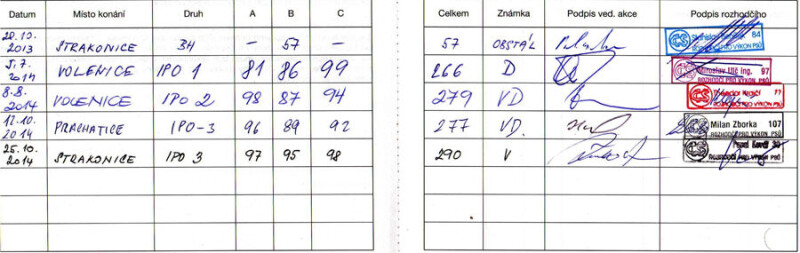 Datum Místo konání Druh A B C Celkem Známka Podpis ved. akce Podpis rozhodčího
20.10. 2013 STRAKONICE BH — 57 — 57 OBSTÁL 84
ROZHODČÍ PRO VÝKON PSŮ
5.7. 2014 VOLENICE IPO 1 81 86 99 266 D ing. 97
ROZHODČÍ PRO VÝKON PSŮ
8.8. 2014 VOLENICE IPO 2 98 87 94 279 VD 77
ROZHODČÍ PRO VÝKON PSŮ
12.10. 2014 PRACHATICE IPO-3 96 89 92 277 VD. Milan Zborka 107
ROZHODČÍ PRO VÝKON PSŮ
25.10. 2014 STRAKONICE IPO 3 97 95 98 290 V
ROZHODČÍ PRO VÝKON PSŮ